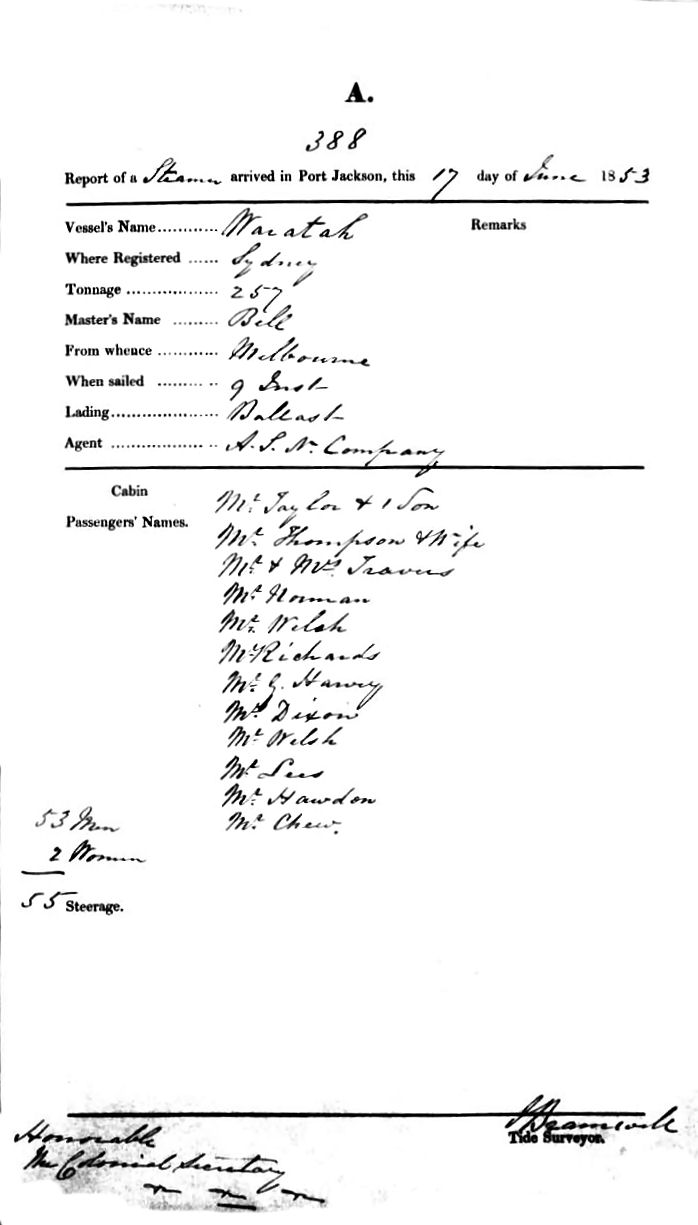 A.
388
Report of a Steamer arrived in Port Jackson, this 17 day of June 1853
Vessel's Name............ Waratah Remarks
Where Registered ...... Sydney
Tonnage .................. 257
Master's Name ......... Bell
From whence ............ Melbourne
When sailed ......... .. 9 Inst
Lading..................... Ballast
Agent .................. .. A. S. N. Company
Cabin
Passengers' Names.
Mr. Taylor & 1 Son
Mr. Thompson & Wife
Mr. & Mrs. Travers
Mr. Norman
Mr. Welsh
Mr. Richards
Mr. G. Harvey
Mr. Dixon
Mr. Welsh
Mr. Lees
Mr. Hawdon
Mr. Chew.
53 Men
2 Women
55 Steerage.
Bramwell
Tide Surveyor.
Honorable
The Colonial Secretary